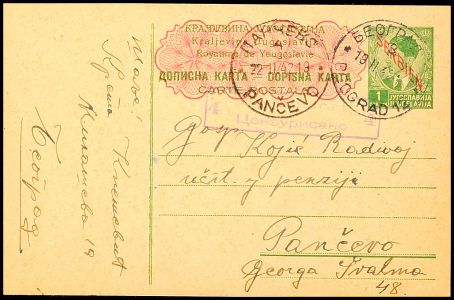 КРАЉЕВИНА ЈУГОСЛАВИЈА
Kraljevina Jugoslavija
Royaume de Yougoslavie
ДОПИСНА КАРТА — DOPISNA KARTA
CARTE POSTALE
ПАНЧЕВО
22.II.42.19
PANČEVO
БЕОГРАД
BEOGRAD
SERBIEN
1
ЈУГОСЛАВИЈА
JUGOSLAVIJA
1
4 Цензурисано 4
Gosp. Kojić Radivoj
učit. u penziji
Pančevo
Georga Ivalma
48
Шаље
Крста
19
Београд